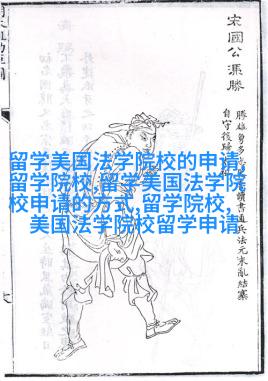 宋國公馮勝
勝雄勇多
讀書通兵法元末亂結寨
自守後歸
留学美国法学院校的申请,
留学院校,留学美国法学院
校申请的方式,留学院校,
美国法学院校留学申请